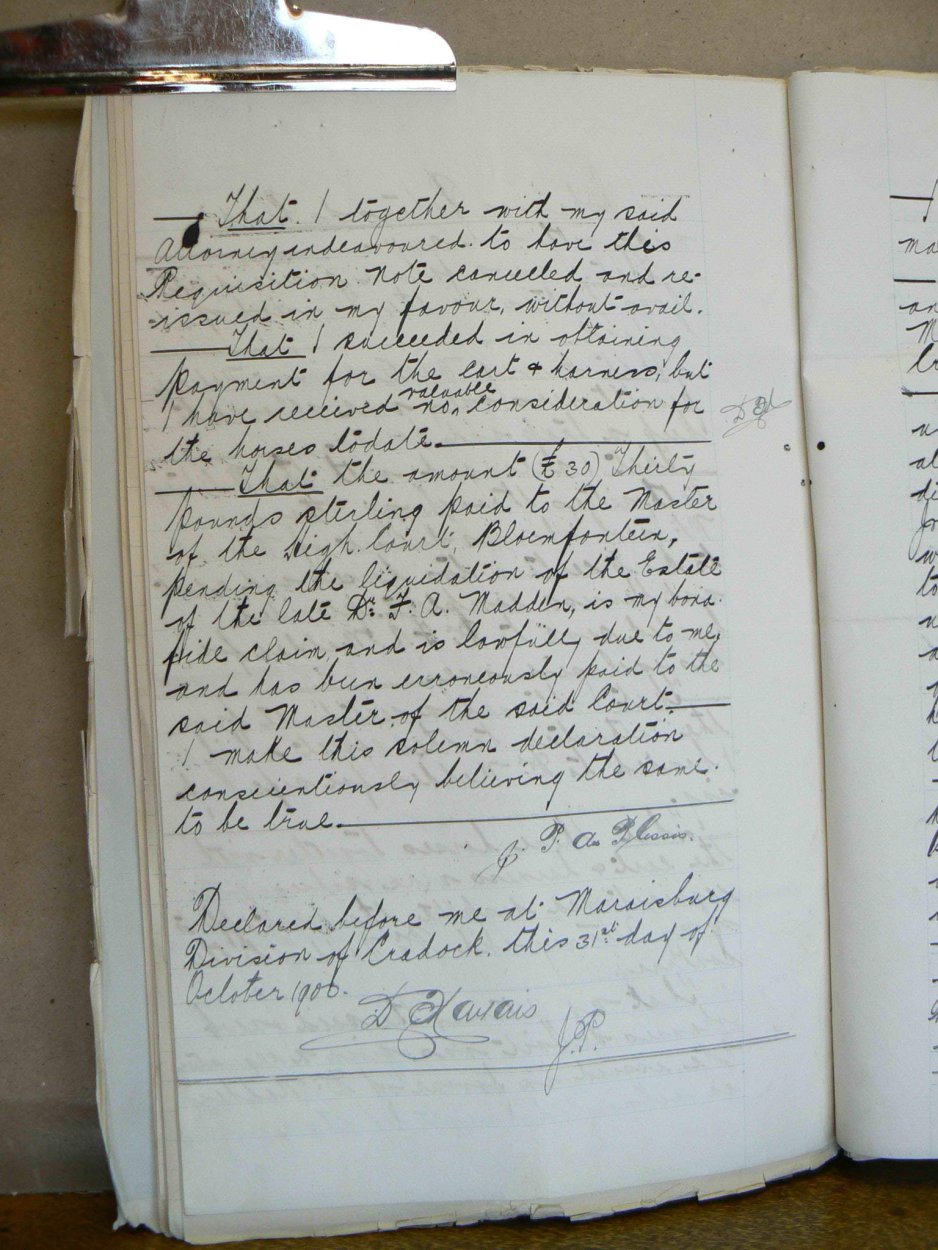 That. I together with my said
Attorney endeavoured to have this
Requisition Note cancelled and re-
issued in my favour, without avail.
That I succeeded in obtaining
payment for the cart & harness, but
valuable
I have received no consideration for
the horses todate.
That the amount (£30) Thirty
pounds sterling paid to the Master
of the High Court, Bloemfontein,
pending the liquidation of the Estate
of the late Dr. F. A. Madden, is my bona
fide claim and is lawfully due to me,
and has been erroneously paid to the
said Master of the said Court.
I make this solemn declaration
conscientiously believing the same
to be true.
J. P. du Plessis.
Declared before me at Maraisburg
Division of Cradock. this 31st day of
October 190
D
J.P.